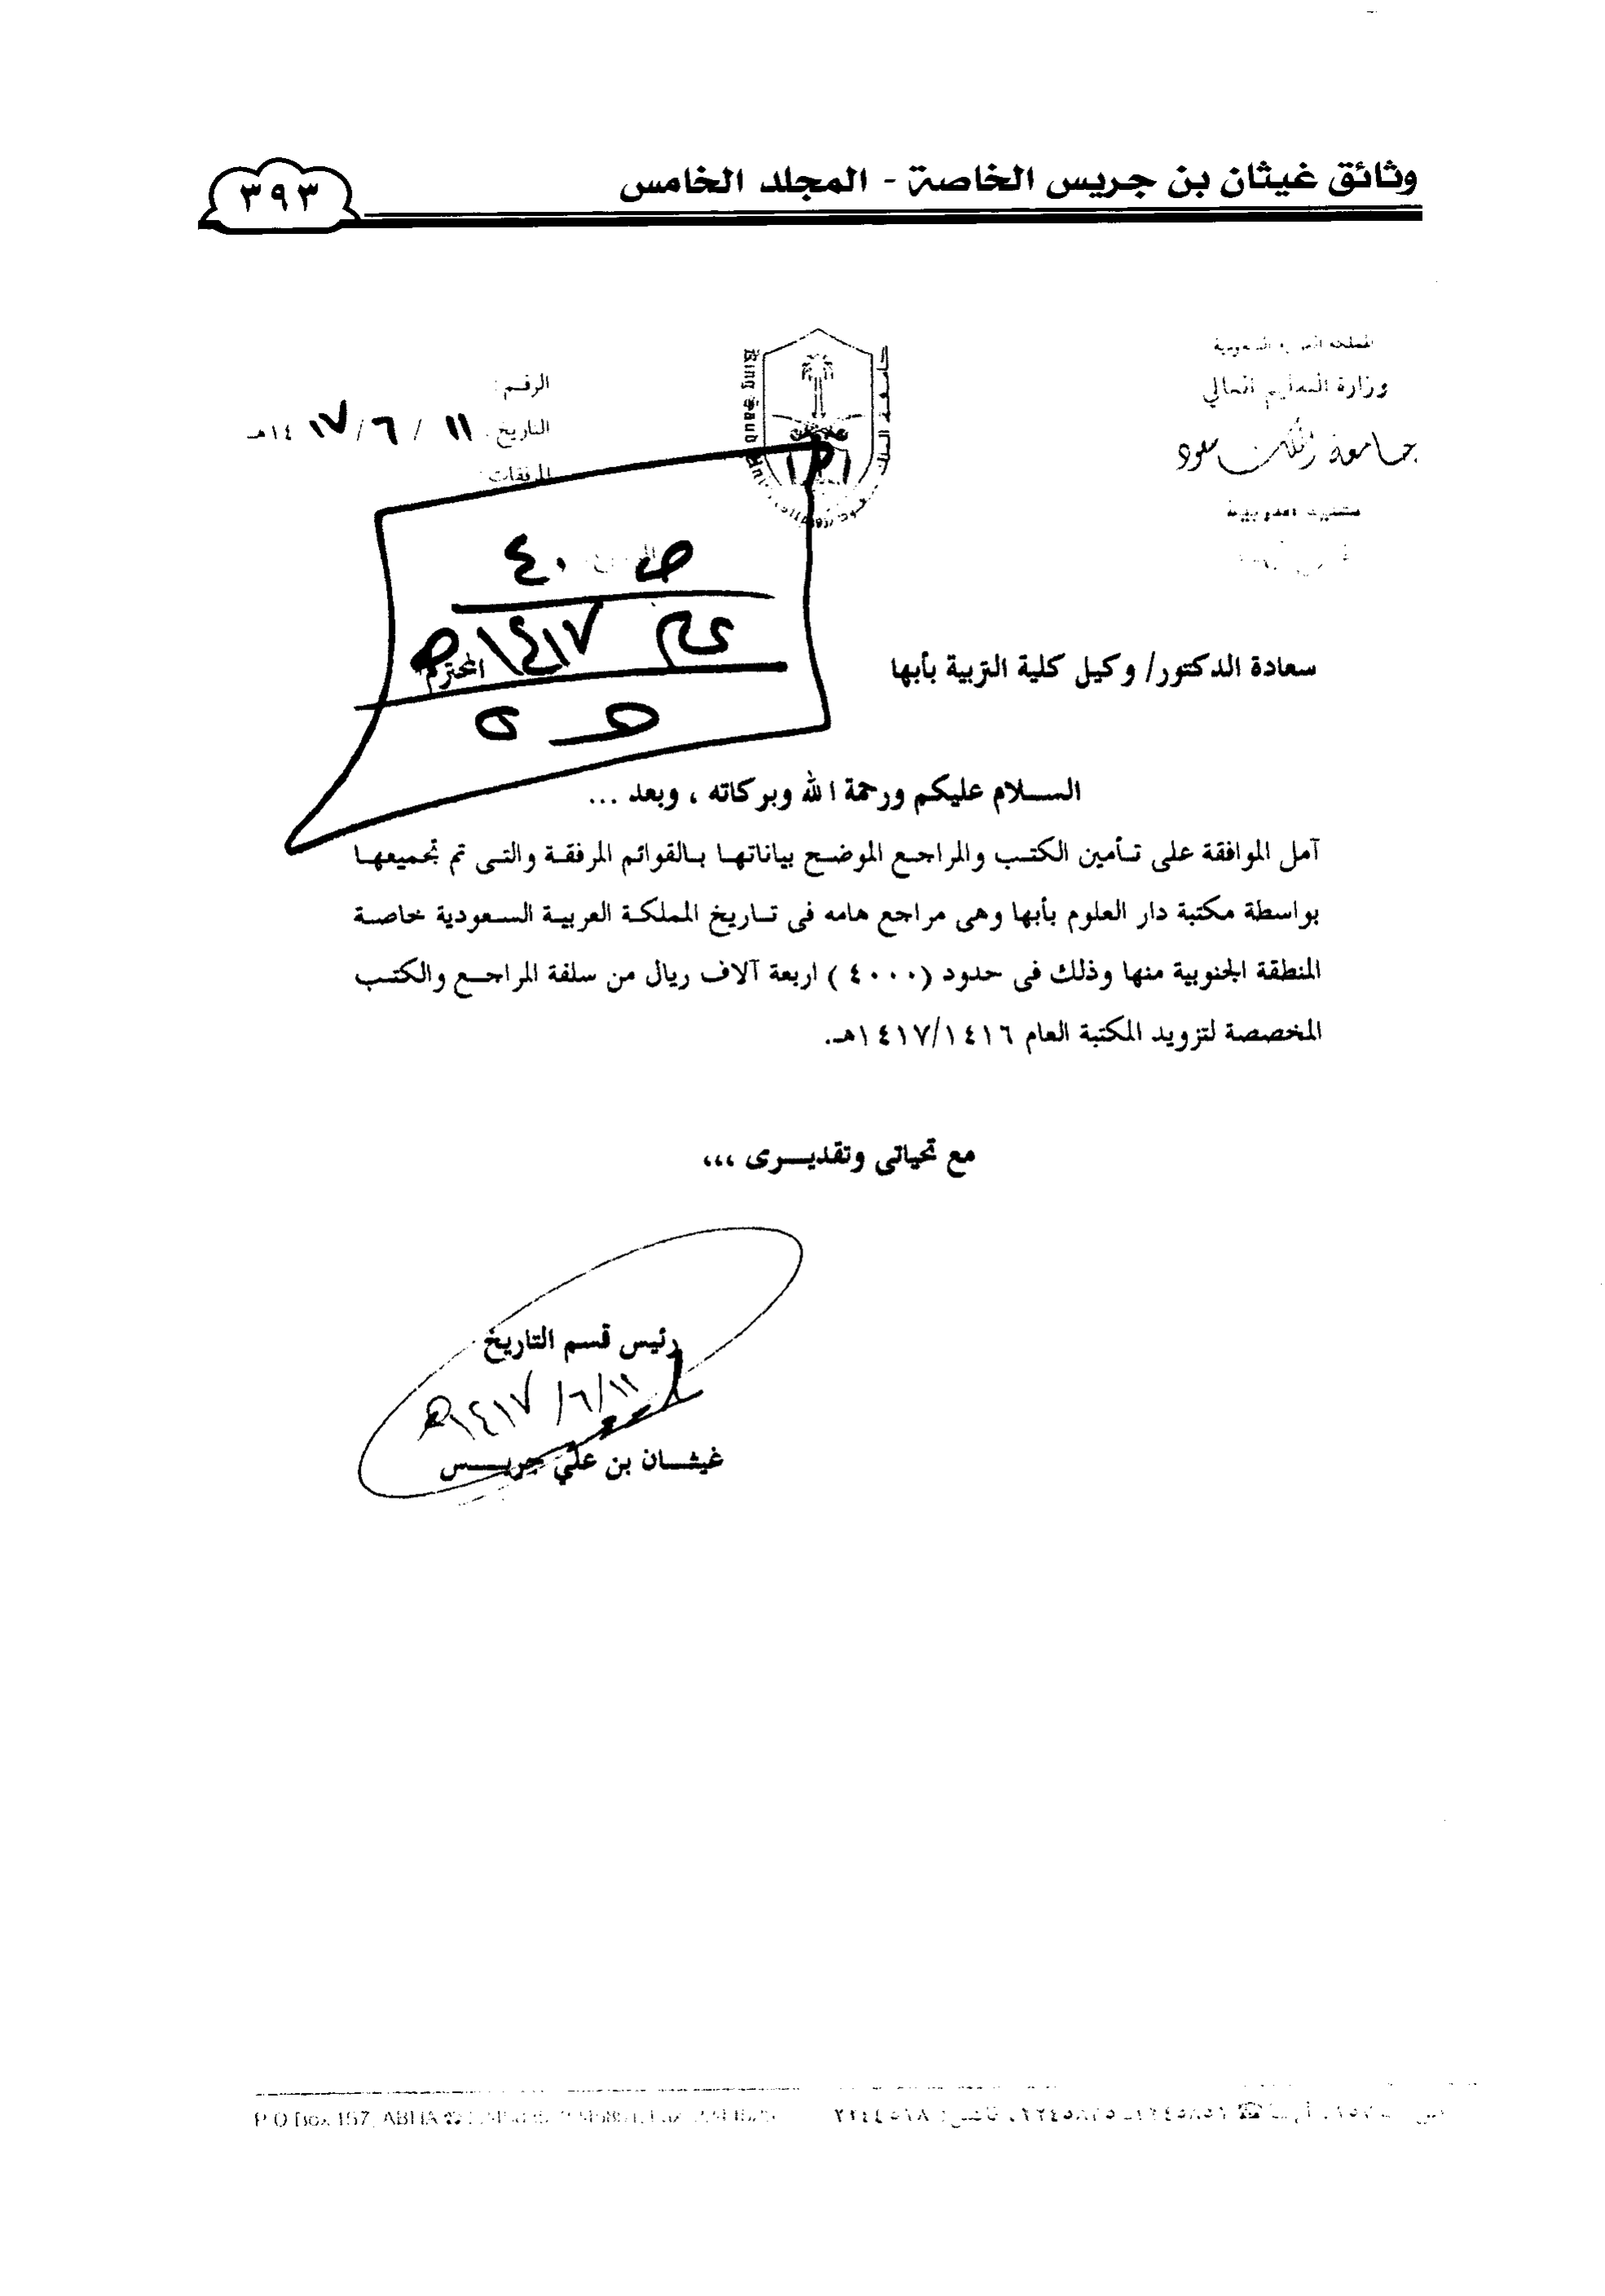 وثائق غيثان بن جريس الخاصة - المجلد الخامس
٣٩٣
المملكة العربية السعودية
وزارة التعليم العالي
جامعة الملك سعود
الرقم:
التاريخ: ١١ / ٦ / ١٤١٧هـ
المرفقات:
King Saud University
ص ٤٠
١٤١٧هـ
سعادة الدكتور/ وكيل كلية التربية بأبها المحترم
السلام عليكم ورحمة الله وبركاته ، وبعد ...
آمل الموافقة على تأمين الكتب والمراجع الموضح بياناتها بالقوائم المرفقة والتى تم تجميعها
بواسطة مكتبة دار العلوم بأبها وهى مراجع هامه فى تاريخ المملكة العربية السعودية خاصة
المنطقة الجنوبية منها وذلك فى حدود (٤٠٠٠) اربعة آلاف ريال من سلفة المراجع والكتب
المخصصة لتزويد المكتبة العام ١٤١٧/١٤١٦هـ.
مع تحياتى وتقديرى ،،،
رئيس قسم التاريخ
١١/٦/١٤١٧هـ
غيثان بن علي جريس
P O Box 157, ABHA